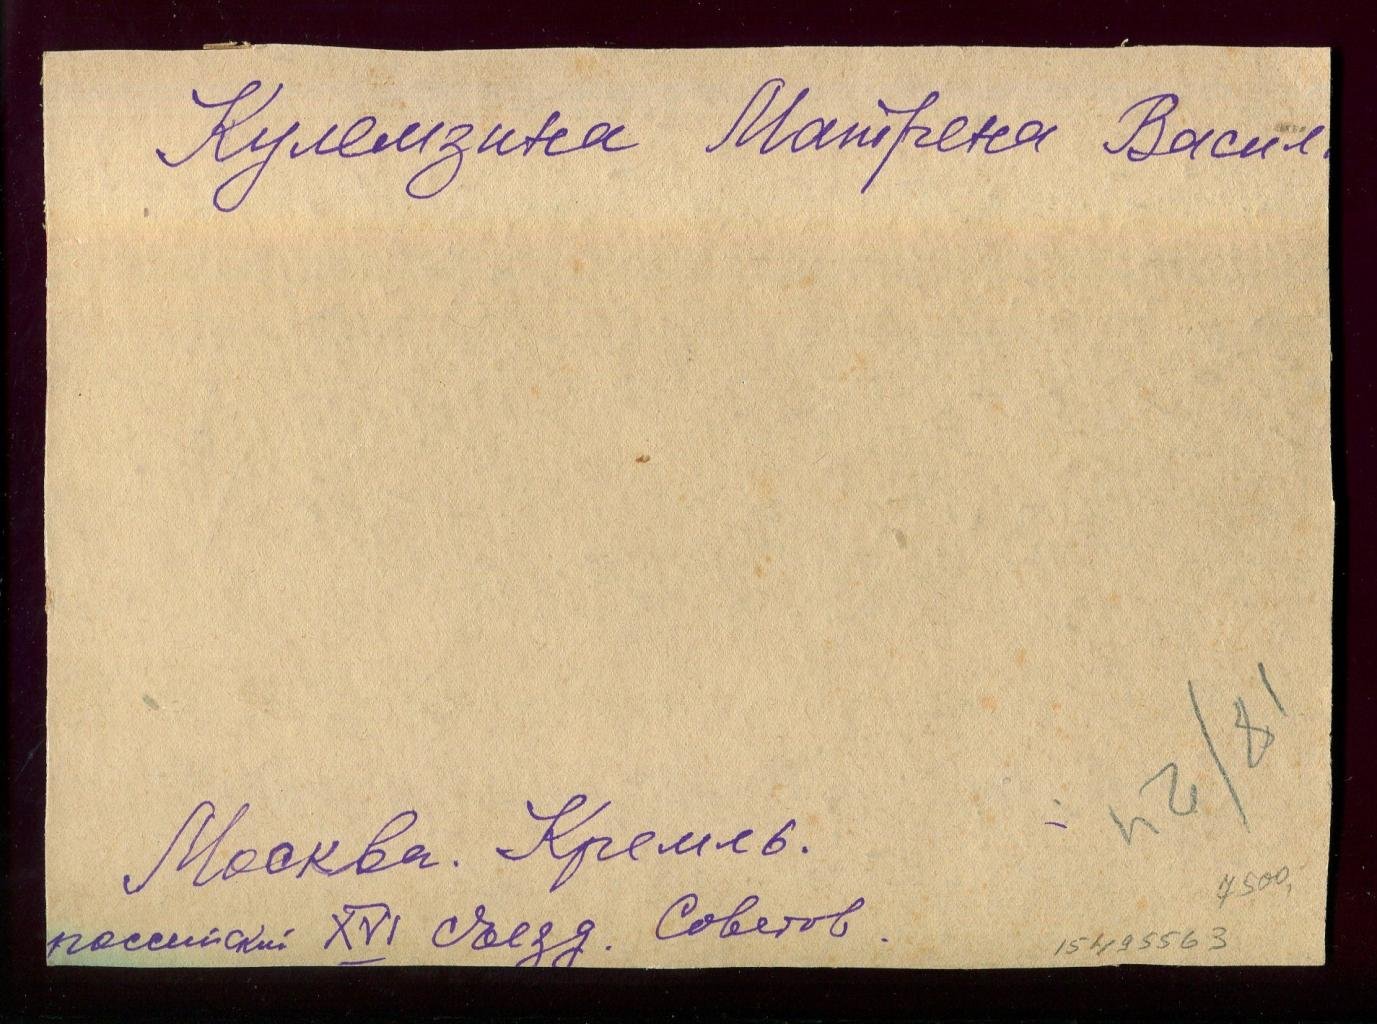 Кулемзина Матрена Васил.
Москва. Кремль.
российский XVI съезд. Советов.
7500,
15495563